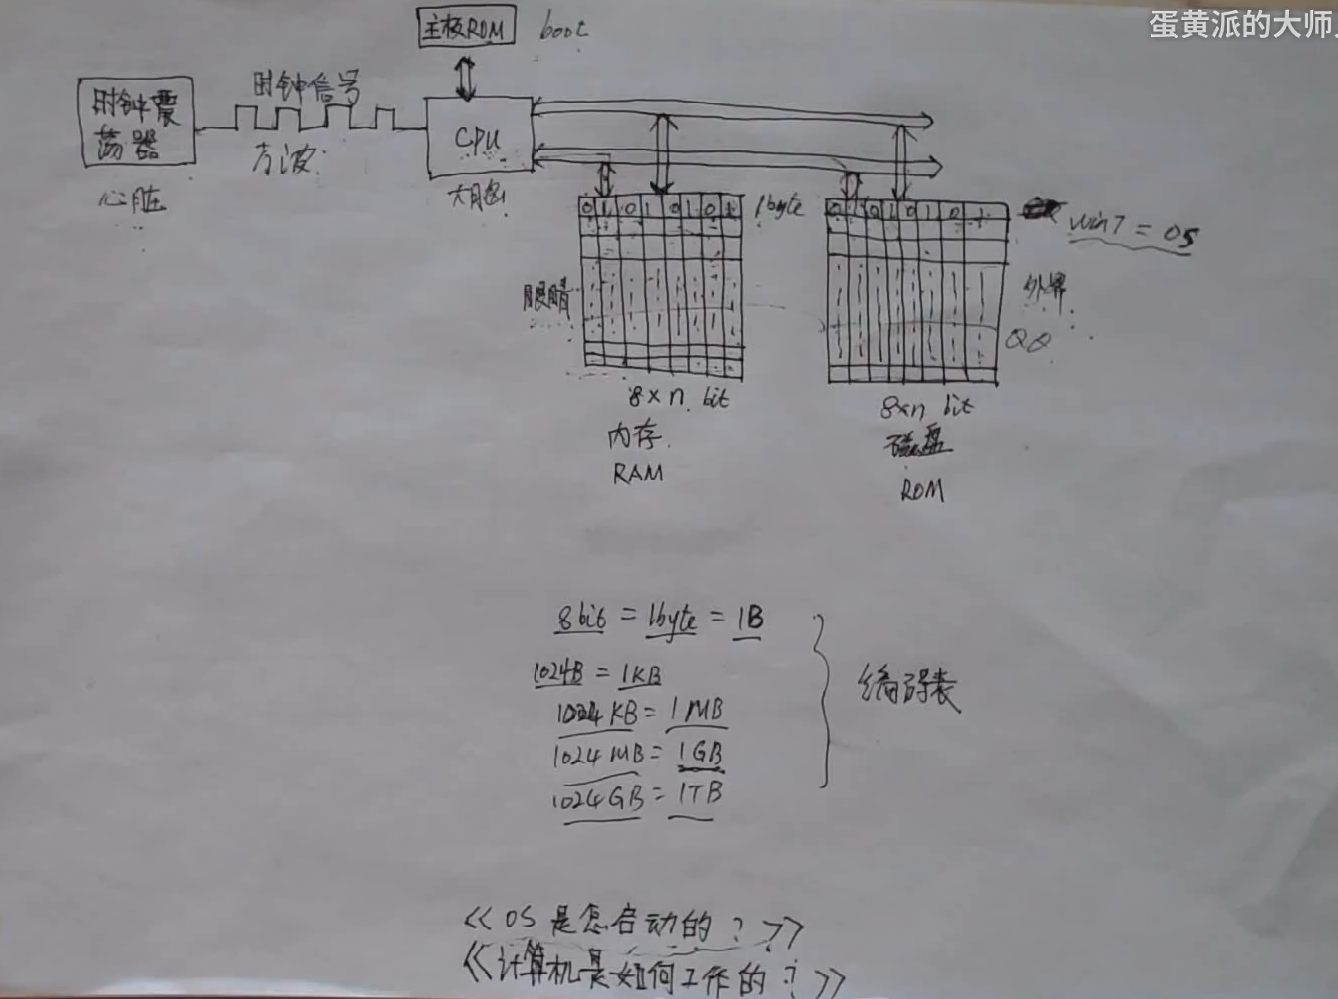 蛋黄派的大师
主板ROM boot
时钟震
荡器
心脏
时钟信号
方波
CPU
大脑
0 1 0 1 0 1 0 1
1byte
0 1 0 1 0 1 0 1
win7 = OS
眼睛
外界
QQ
8×n bit
内存
RAM
8×n bit
磁盘
ROM
8bit = 1byte = 1B
1024B = 1KB
1024KB = 1MB
1024MB = 1GB
1024GB = 1TB
编码表
<<OS是怎启动的？>>
<<计算机是如何工作的？>>